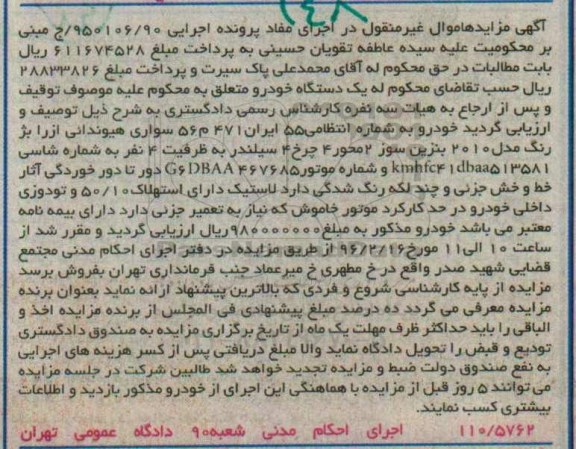 ۱۴۸
آگهی مزایدهاموال غیرمنقول در اجرای مفاد پرونده اجرایی ۹۵۰۱۰۶/۹۰/ج مبنی
بر محکومیت علیه سیده عاطفه تقویان حسینی به پرداخت مبلغ ۶۱۱۶۷۴۵۲۸ ریال
بابت مطالبات در حق محکوم له آقای محمدعلی پاک سیرت و پرداخت مبلغ ۲۸۸۳۳۸۲۶
ریال حسب تقاضای محکوم له یک دستگاه خودرو متعلق به محکوم علیه موصوف توقیف
و پس از ارجاع به هیات سه نفره کارشناس رسمی دادگستری به شرح ذیل توصیف و
ارزیابی گردید خودرو به شماره انتظامی۵۵ ایران۴۷۱ م۵۶ سواری هیوندائی ازرا بژ
رنگ مدل۲۰۱۰ بنزین سوز ۲محور۴ چرخ۴ سیلندر به ظرفیت ۴ نفر به شماره شاسی
kmhfc۴۱dbaa۵۱۳۵۸۱ و شماره موتور۴۶۷۶۸۵ G۶DBAA دور تا دور خوردگی آثار
خط و خش جزئی و چند لکه رنگ شدگی دارد لاستیک دارای استهلاک۵۰/۱۰ و تودوزی
داخلی خودرو در حد کارکرد موتور خاموش که نیاز به تعمیر جزئی دارد دارای بیمه نامه
معتبر می باشد خودرو مذکور به مبلغ۹۸۰۰۰۰۰۰۰ریال ارزیابی گردید و مقرر شد از
ساعت ۱۰ الی۱۱ مورخ۹۶/۲/۱۶ از طریق مزایده در دفتر اجرای احکام مدنی مجتمع
قضایی شهید صدر واقع در خ مطهری خ میرعماد جنب فرمانداری تهران بفروش برسد
مزایده از پایه کارشناسی شروع و فردی که بالاترین پیشنهاد ارائه نماید بعنوان برنده
مزایده معرفی می گردد ده درصد مبلغ پیشنهادی فی المجلس از برنده مزایده اخذ و
الباقی را باید حداکثر ظرف مهلت یک ماه از تاریخ برگزاری مزایده به صندوق دادگستری
تودیع و قبض را تحویل دادگاه نماید والا مبلغ دریافتی پس از کسر هزینه های اجرایی
به نفع صندوق دولت ضبط و مزایده تجدید خواهد شد طالبین شرکت در جلسه مزایده
می توانند ۵ روز قبل از مزایده با هماهنگی این اجرای از خودرو مذکور بازدید و اطلاعات
بیشتری کسب نمایند.
۱۱۰/۵۷۶۲ اجرای احکام مدنی شعبه۹۰ دادگاه عمومی تهران